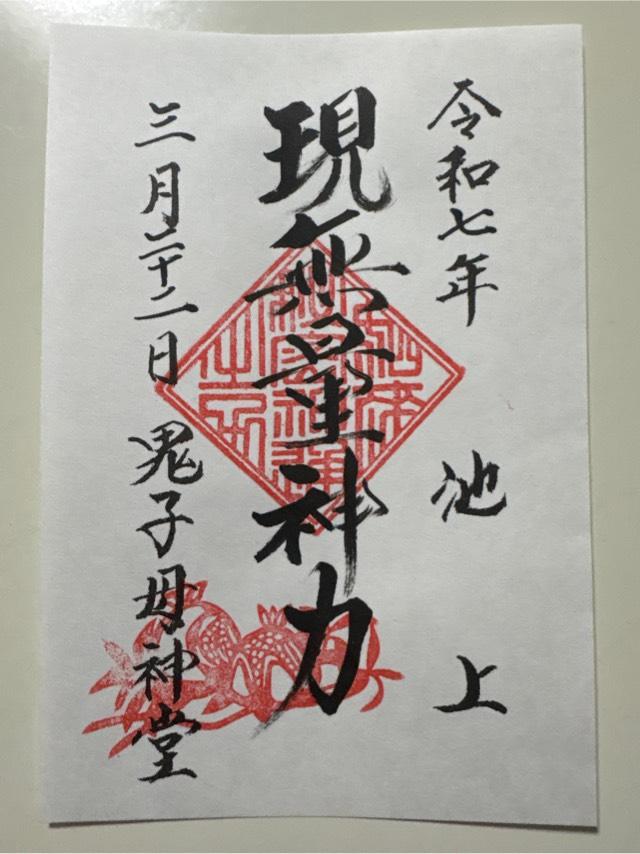 令和七年 池上
現無量神力
三月二十二日 鬼子母神堂